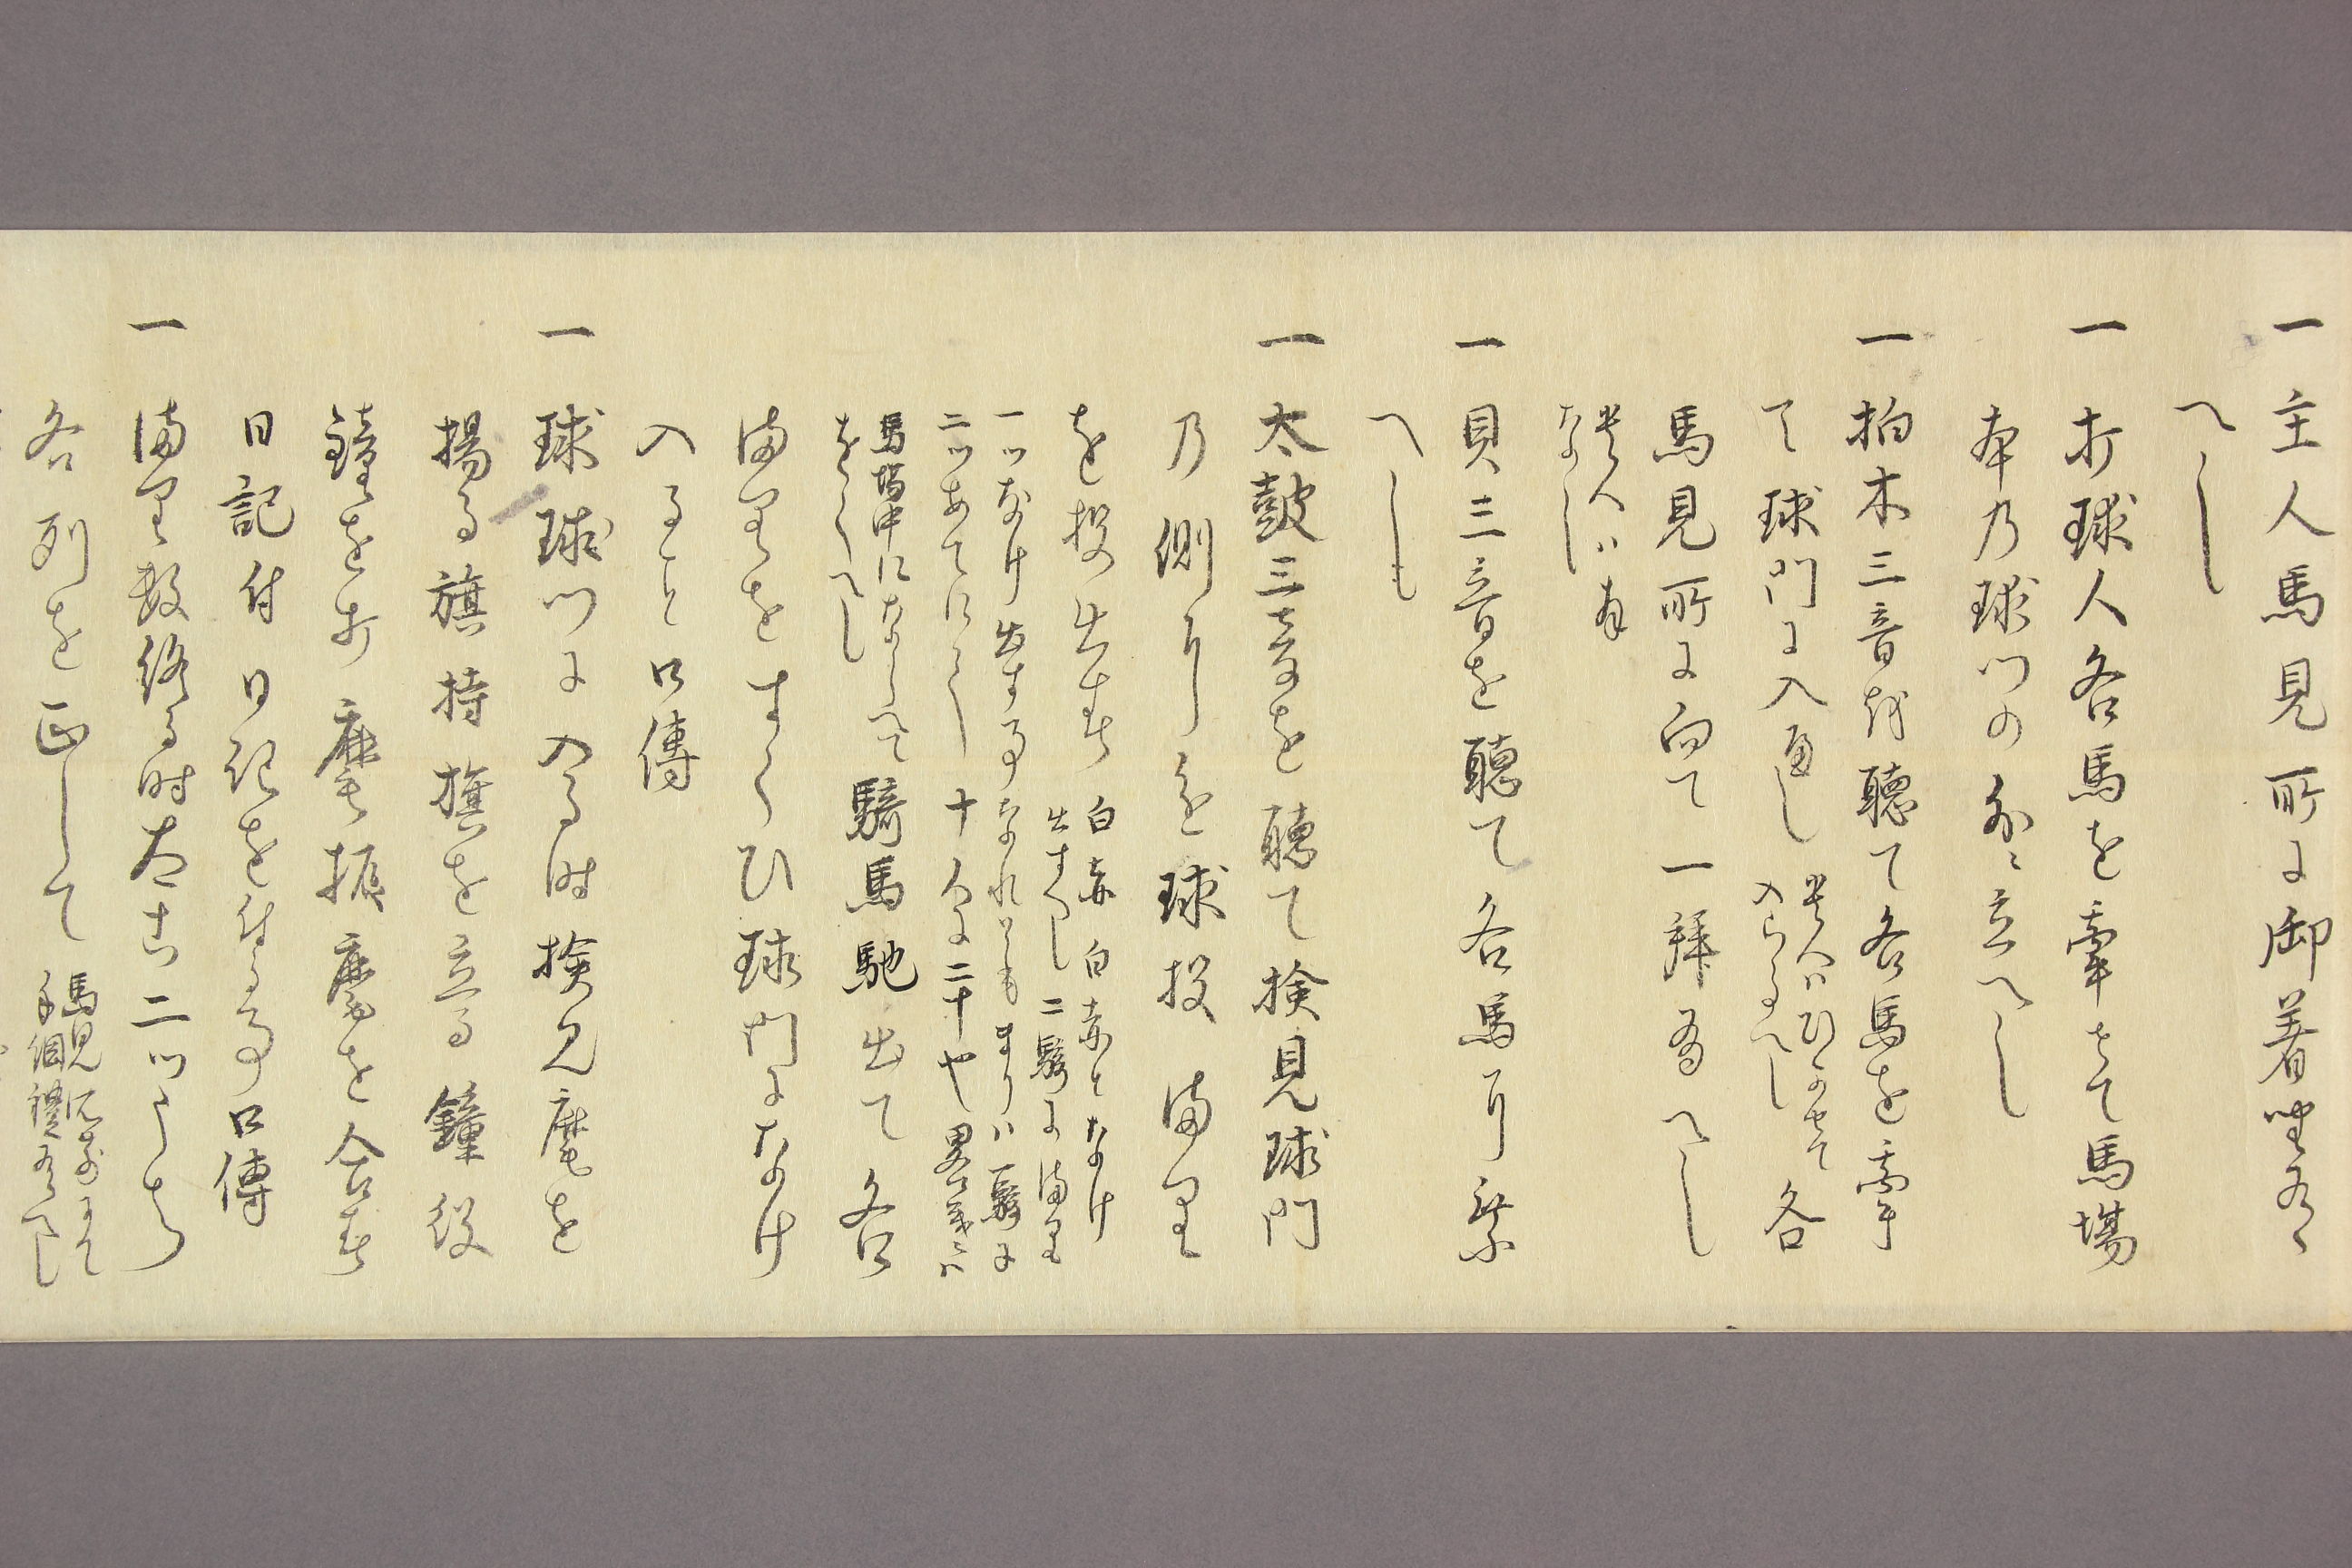 一主人馬見所に御着坐有
へし
一打球人各馬を牽せて馬場
本乃球門の外に立へし
一柏木三音越聴て各馬を牽
て球門に入へし
貴人ハひかせて
入らるへし
各
馬見所に向て一拝有へし
貴人ハ
なかし
一貝三音を聴て各馬に乗
へし
一太鼓三音を聴て検見球門
乃側にを球投満里
を投出す
白赤白赤となけ
出すへし二騎に満里
一ツなけ出す事なれともまりハ一騎に
二ツあてにして十人に二十や
馬場中にならへて
をくへし
騎馬馳出て各
満里をすくひ球門になけ
入ること口傳
一球球門に入る時検見麾を
揚る旗持旗を立る鐘役
鐘を打麾振麾を合す
日記付日記を付る事口傳
一満里数終る時太鼓二ツうち
各列を正して
馬見所前にて